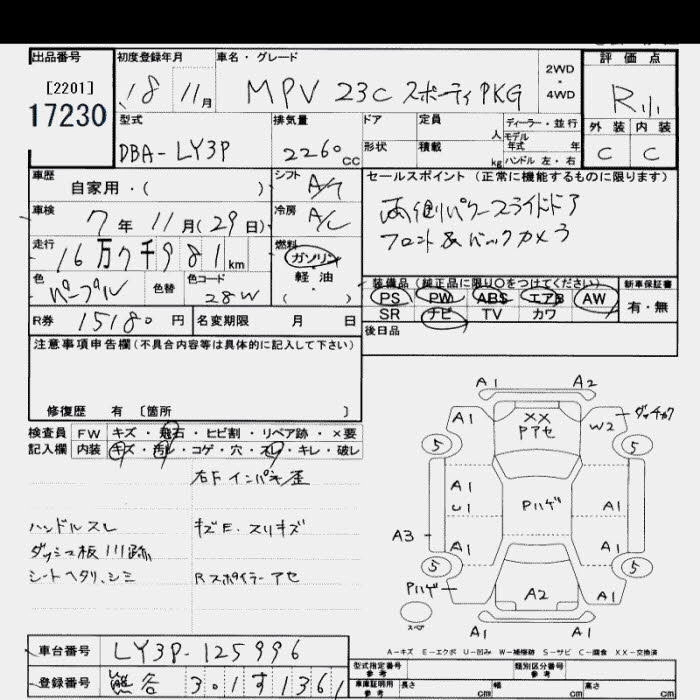 出品番号 初度登録年月 車名・グレード 2WD・4WD 評価点
[2201]
17230
18 11月 MPV 23C スポーティPKG R小
型式 排気量 ドア 定員 人 ディーラー・並行 外装 内装
DBA-LY3P 2260cc 形状 積載 kg モデル年式 年 ハンドル 左・右 C C
車歴 自家用・( ) シフト A/T セールスポイント (正常に機能するものに限ります)
車検 7年11月(29日) 冷房 A/C 両側パワースライドドア
フロント&バックカメラ
走行 16万7千981km 燃料 ガソリン 軽・油 ( ・ )
色 パープル 色替 色コード 28W
装備品(純正品に限り○をつけてください) 新車保証書
PS PW ABS エアB AW 有・無
SR ナビ TV カワ
R券 15180円 名変期限 月 日 後日品
注意事項申告欄(不具合内容等は具体的に記入して下さい)
修復歴 有 〔箇所 〕
検査員 FW キズ・飛石・ヒビ割・リペア跡・×要
記入欄 内装 キズ・汚レ・コゲ・穴・スレ・キレ・破レ
右Fインパネ歪
ハンドルスレ キズE.スリキズ
ダッシュ板川跡
シートヘタリ、シミ Rスポイラーアセ
A1 A2
A1 XX Pアセ W2
5 5
A1 U1 Pハゲ A1
A3
A1 A1
5 5
Pハゲ A2 A1
スペア
A1 A1
A-キズ E-エクボ U-凹み W-補修跡 S-サビ C-腐食 XX-交換済
車台番号 LY3P-125996
登録番号 熊谷 301す1361
型式指定番号 参考 類別区分番号 参考
車庫証明用 参考 長さ cm 幅 cm 高さ cm